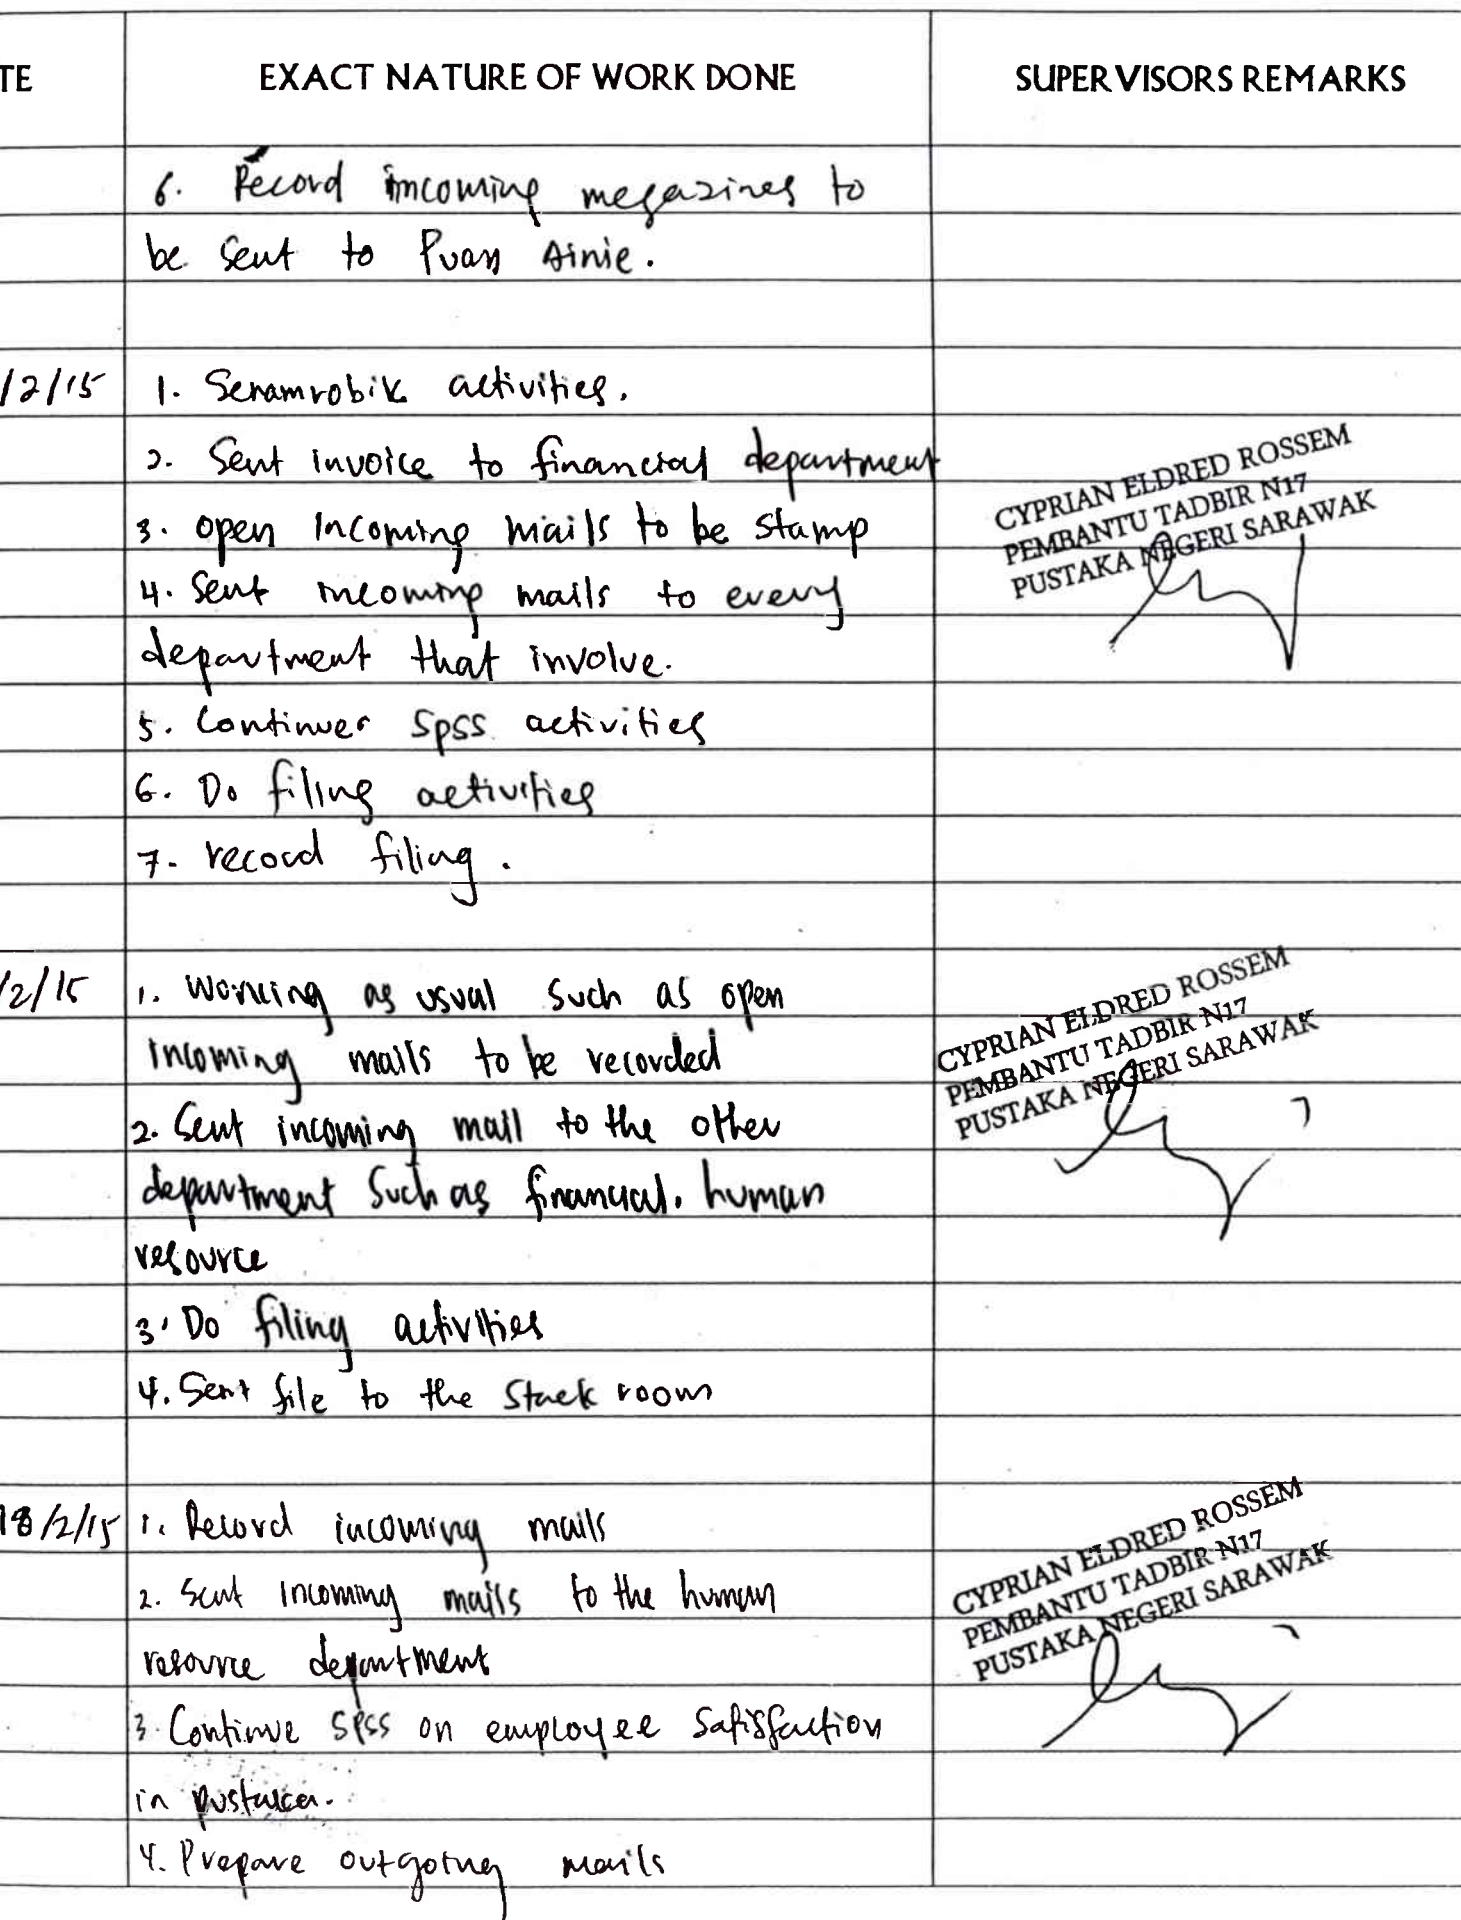 TE EXACT NATURE OF WORK DONE SUPERVISORS REMARKS
6. Record incoming megazines to
be sent to Puan Ainie.
/2/15 1. Senamrobik activities.
2. Sent invoice to financial department
3. open incoming mails to be stamp
4. Sent incoming mails to every
department that involve.
5. Continue SPSS activities
6. Do filing activities
7. record filing.
CYPRIAN ELDRED ROSSEM
PEMBANTU TADBIR N17
PUSTAKA NEGERI SARAWAK
/2/15 1. Working as usual such as open
incoming mails to be recorded
2. Sent incoming mail to the other
department such as financial, human
resource
3. Do filing activities
4. Sent file to the stack room
CYPRIAN ELDRED ROSSEM
PEMBANTU TADBIR N17
PUSTAKA NEGERI SARAWAK
18/2/15 1. Record incoming mails
2. Sent incoming mails to the human
resource department
3. Continue SPSS on employee satisfaction
in pustaka.
4. Prepare outgoing mails
CYPRIAN ELDRED ROSSEM
PEMBANTU TADBIR N17
PUSTAKA NEGERI SARAWAK